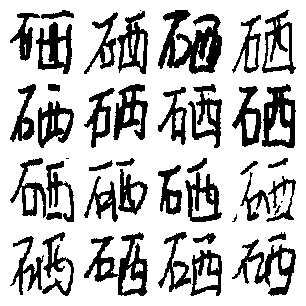 硒硒硒硒
硒硒硒硒
硒硒硒硒
硒硒硒硒